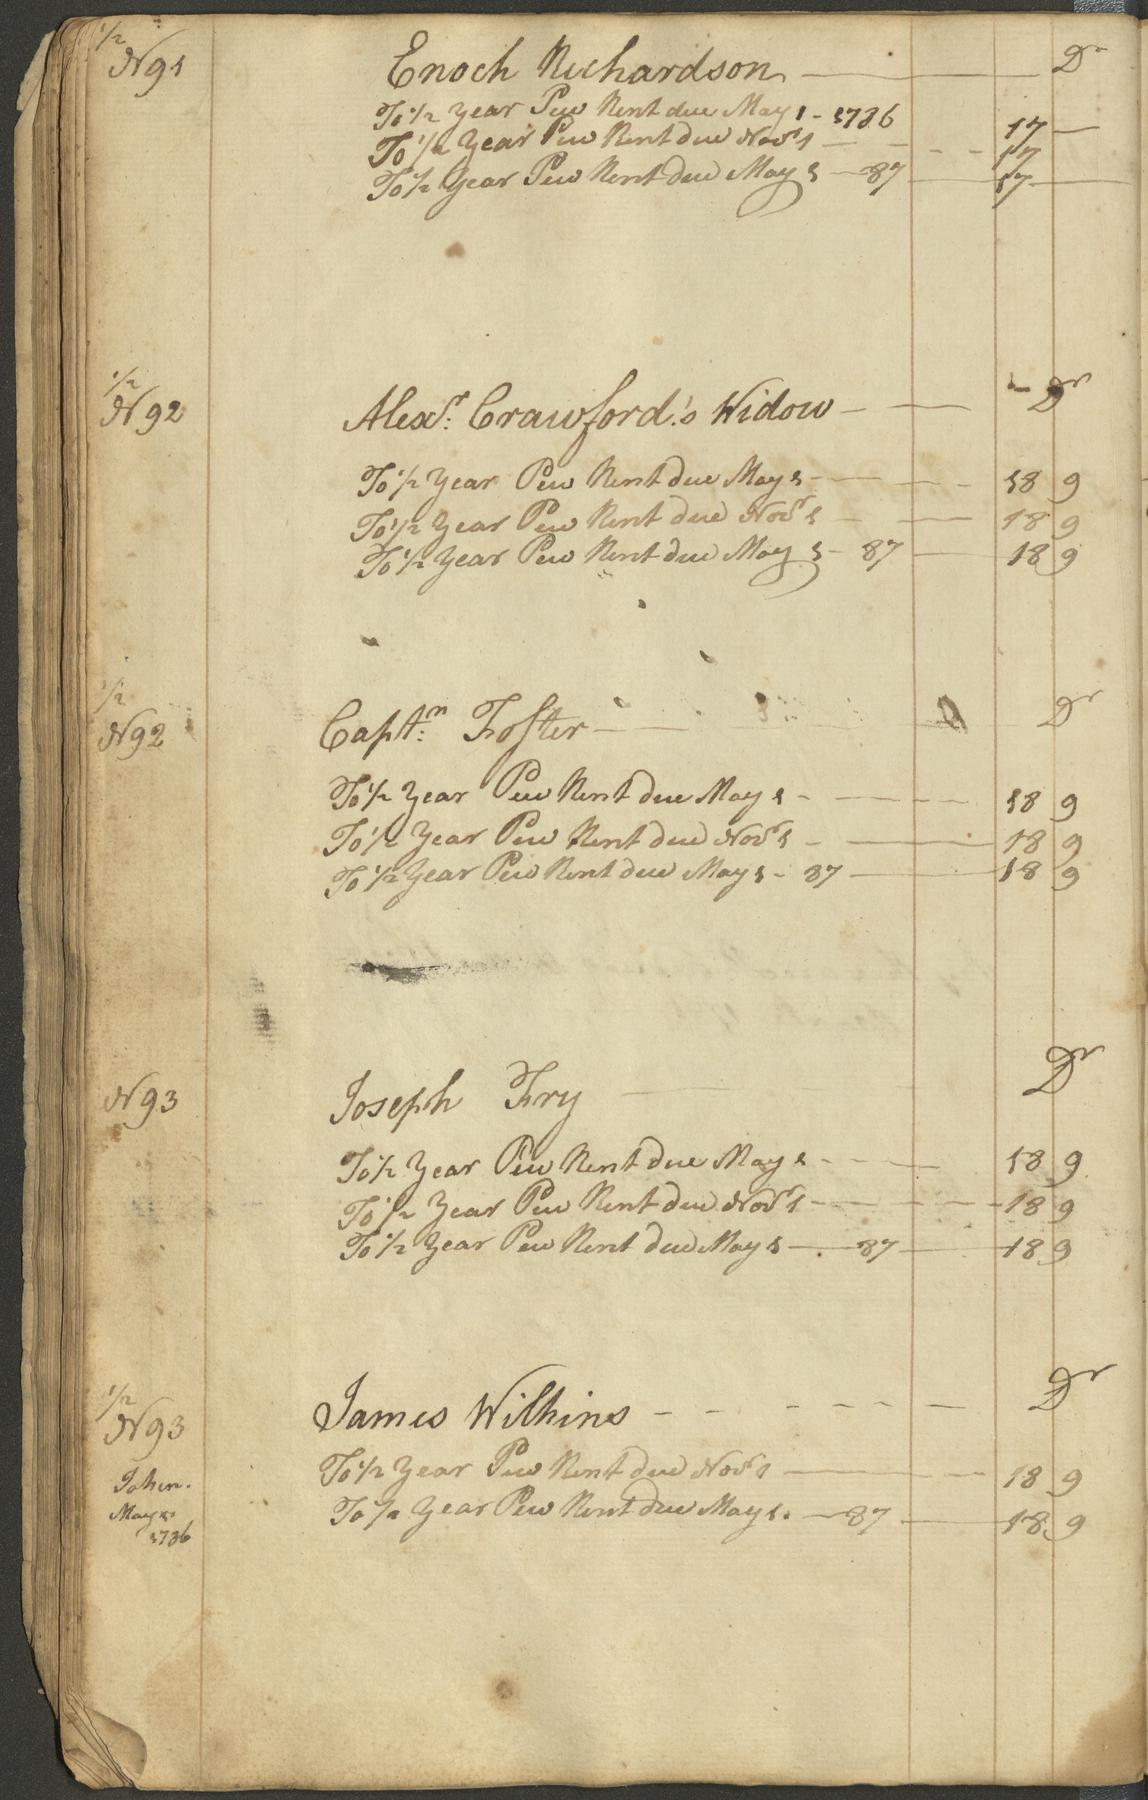 1/2
N 91 Enoch Richardson Dr
To 1/2 Year Pew Rent due May 1 - 1786 17 —
To 1/2 Year Pew Rent due Novr 1 — - - - 17
To 1/2 Year Pew Rent due May 1 — 87 — 17 —
1/2
N 92 Alexr: Crawford's Widow — — Dr
To 1/2 Year Pew Rent due May 1 - — - - 18 9
To 1/2 Year Pew Rent due Novr 1 — — 18 9
To 1/2 Year Pew Rent due May 1 - 87 — 18 9
1/2
N 92 Captn: Foster — Dr
To 1/2 Year Pew Rent due May 1 - — — 18 9
To 1/2 Year Pew Rent due Novr 1 - — 18 9
To 1/2 Year Pew Rent due May 1 - 87 — 18 9
N 93 Joseph Fry — Dr
To 1/2 Year Pew Rent due May 1 - — - 18 9
To 1/2 Year Pew Rent due Novr 1 — — 18 9
To 1/2 Year Pew Rent due May 1 — 87 — 18 9
1/2
N 93 James Wilkins - - - - - — Dr
To 1/2 Year Pew Rent due Novr 1 — 18 9
Taken.
May 1
1786
To 1/2 Year Pew Rent due May 1. — 87 — 18 9